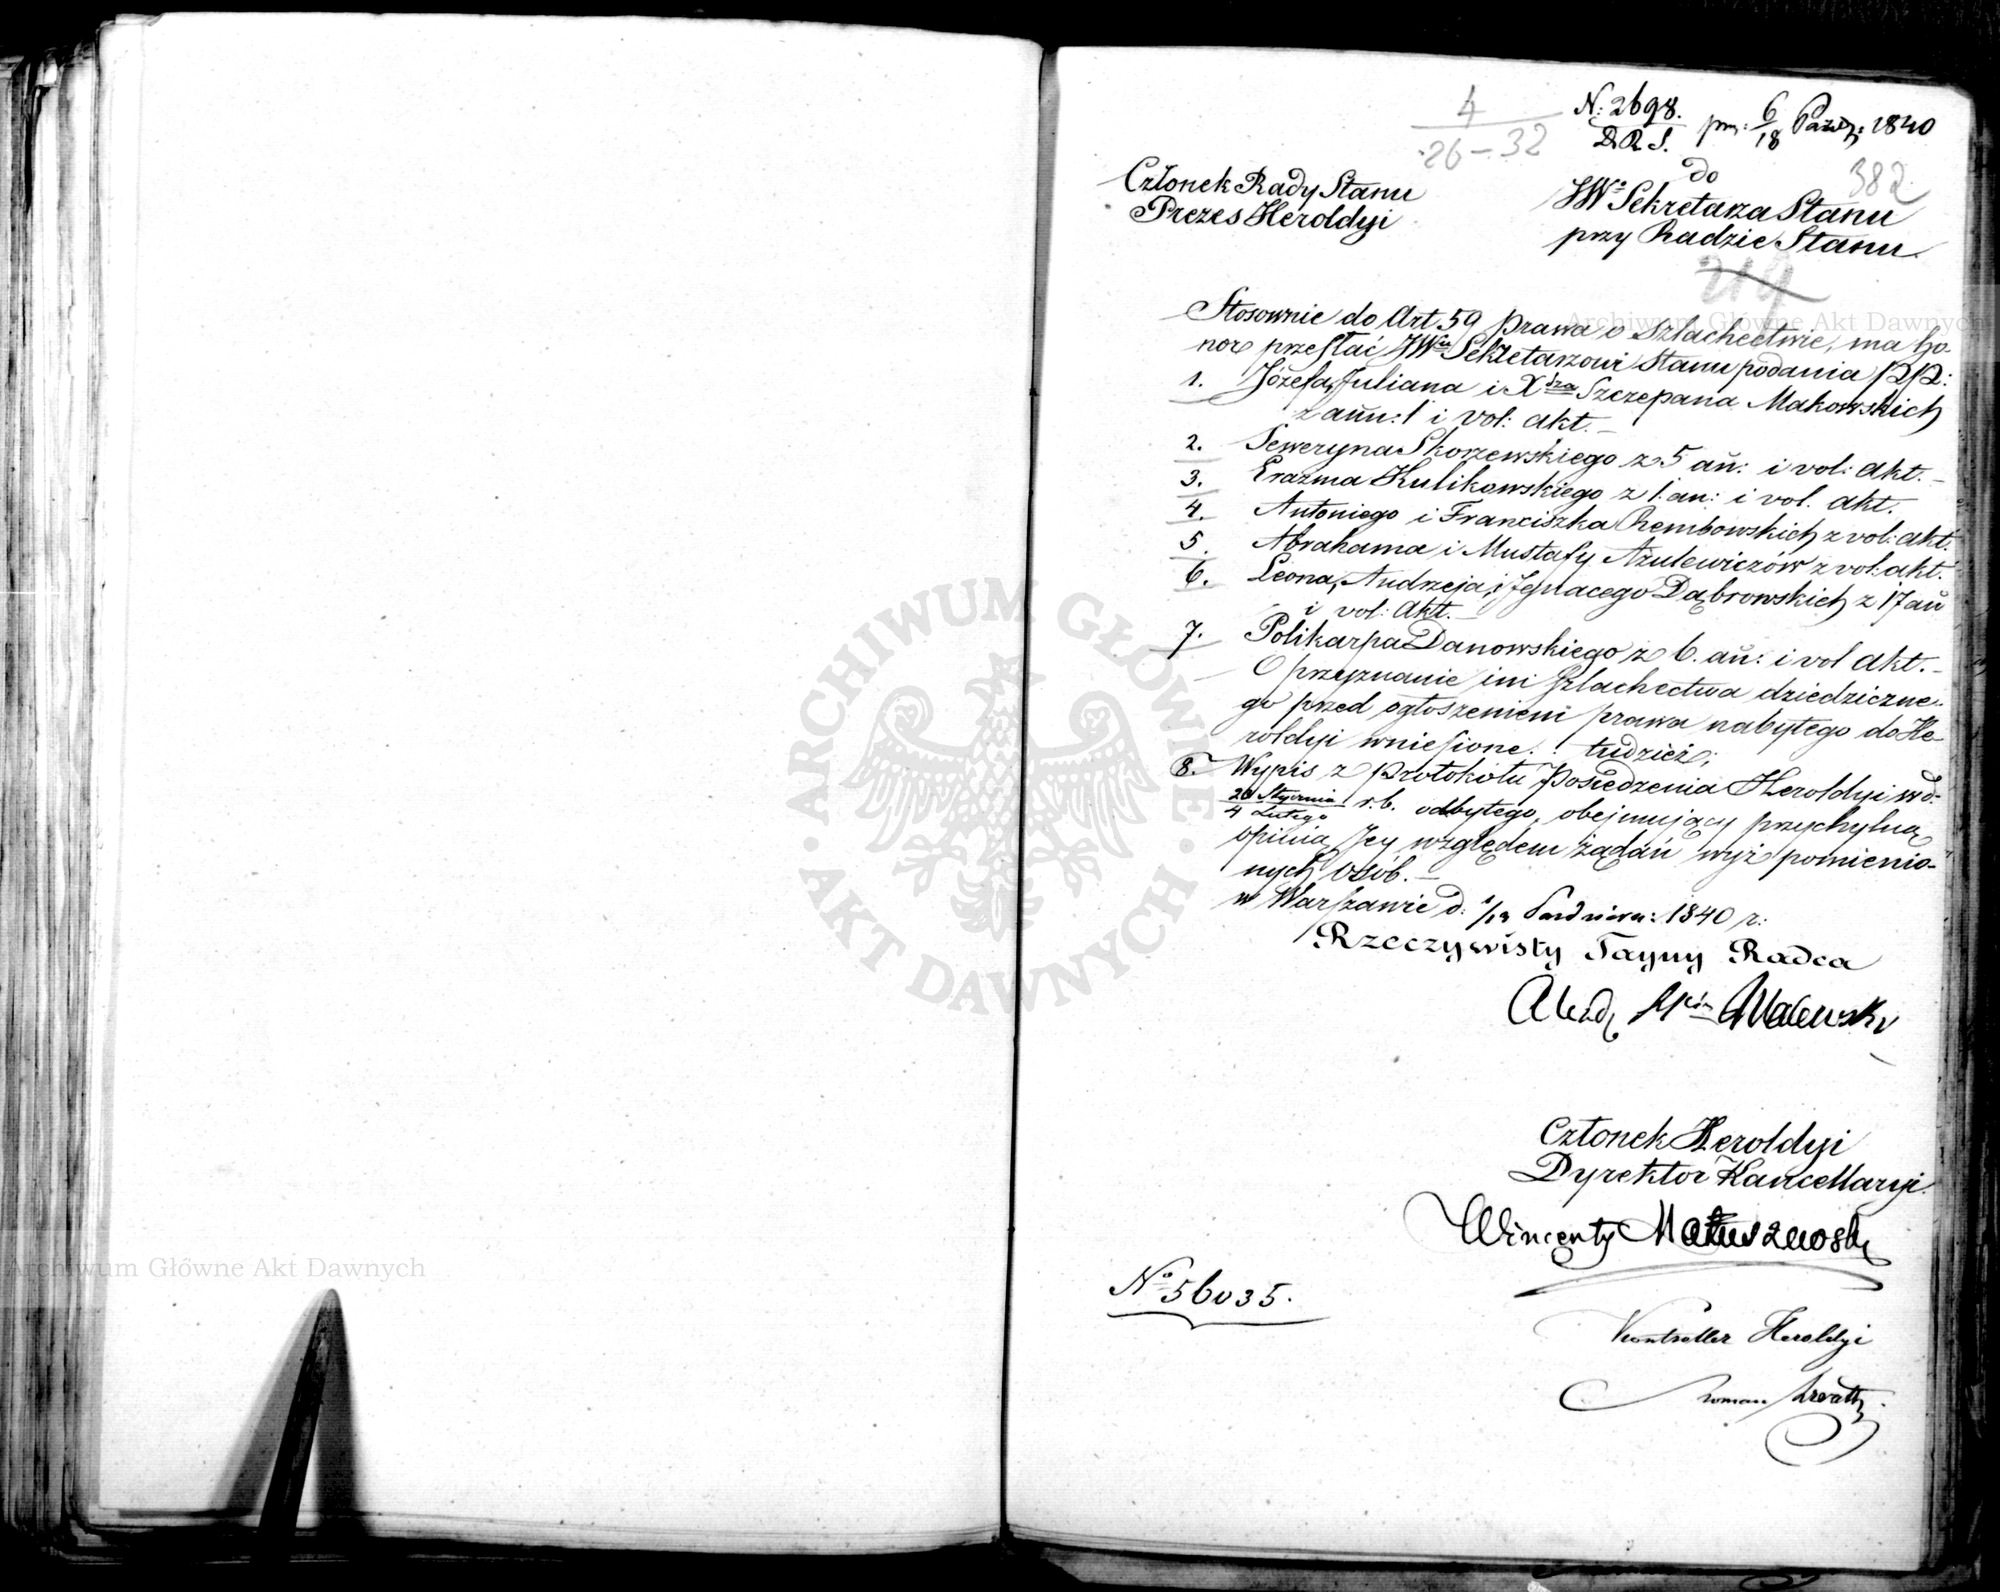 4
26-32
N: 2698.
D.R.S. pr: 6/18 Paźdz: 1840
382
Członek Rady Stanu
Prezes Heroldyi
do
JWo Sekretarza Stanu
przy Radzie Stanu.
219
Stosownie do Art 59 prawa o Szlachectwie, ma ho-
nor przesłać JWmu Sekretarzowi Stanu podania PP:
1. Józefa, Juliana i Xdza Szczepana Makowskich
z ann: 1 i vol: akt.—
2. Seweryna Skorzewskiego z 5 an̄: i vol: akt.—
3. Erazma Kulikowskiego z 1. an: i vol. akt.
4. Antoniego i Franciszka Rembowskich z vol: akt.
5. Abrahama i Mustafy Azulewiczów z vol: akt.
6. Leona, Andrzeja, i Ignacego Dąbrowskich z 17 an̄
i vol: Akt.—
7. Polikarpa Danowskiego z 6. an̄: i vol akt.—
O przyznanie im szlachectwa dziedziczne-
go przed ogłoszeniem prawa nabytego do He-
roldyi wniesione. tudzież;
8. Wypis z protokołu Posiedzenia Heroldyi w d:
23 Stycznia/4 Lutego r. b. odbytego, obejmujący przychylną
opinią Jey względem żądań wyż pomienio-
nych osób.—
w Warszawie d: 1/13 Październ: 1840 r:
Rzeczywisty Tayny Radca
Alexdr Malewski
Członek Heroldyi
Dyrektor Kancellaryi.
Wincenty Matuszewski
No 56035.
Kontroller Heroldyi
Roman
ARCHIWUM GŁÓWNE AKT DAWNYCH
Archiwum Główne Akt Dawnych
Archiwum Główne Akt Dawnych